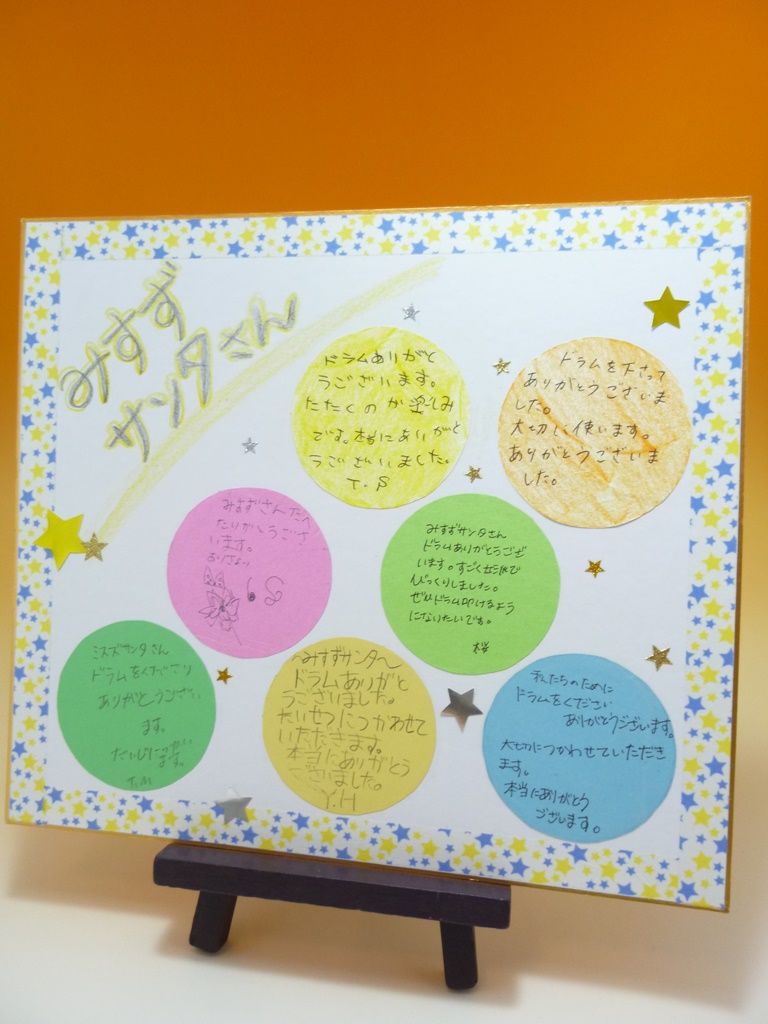 みすず
サンタさん
ドラムありがと
うございます。
たたくのが楽しみ
です。本当にありがと
うございました。
T.S
ドラムを下さって
ありがとうございま
した。
大切に使います。
ありがとうございま
した。
みすずさん
います。
みすずサンタさん
ドラムありがとうござ
います。すごく
びっくりしました。
ぜひドラム叩けるよう
になりたいです。
桜
ミスズサンタさん
ドラムをくださり
ありがとうござい
ます。
だいじに
ます。
T.M
〜みすずサンタ〜
ドラムありがと
うございました。
たいせつにつかわせて
いただきます。
本当にありがとう
ございました。
Y.H
私たちのために
ドラムをください
ありがとうございます。
大切につかわせていただき
ます。
本当にありがとう
ございます。